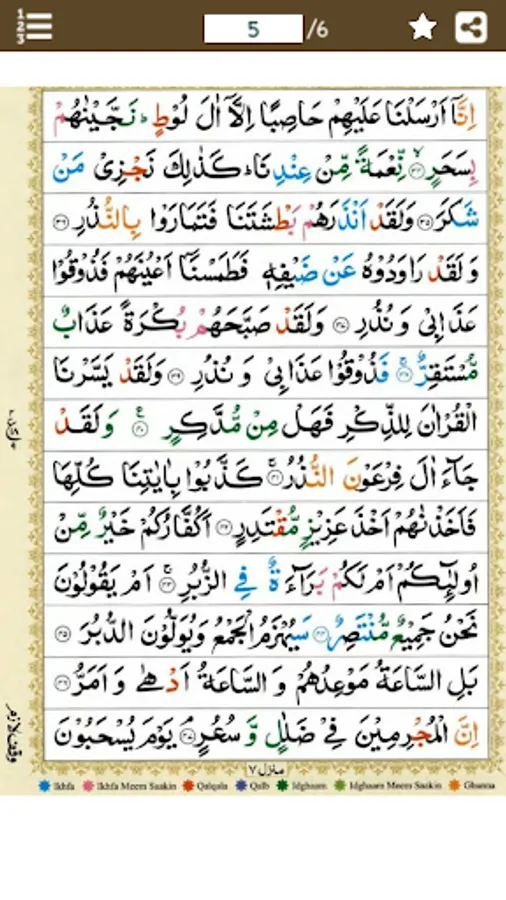 5 /6
اِنَّاۤ اَرْسَلْنَا عَلَيْهِمْ حَاصِبًا اِلَّاۤ اٰلَ لُوْطٍ ؕ نَجَّيْنٰهُمْ
بِسَحَرٍۙ ۝۳۴ نِّعْمَةً مِّنْ عِنْدِنَا ؕ كَذٰلِكَ نَجْزِيْ مَنْ
شَكَرَ ۝۳۵ وَلَقَدْ اَنْذَرَهُمْ بَطْشَتَنَا فَتَمَارَوْا بِالنُّذُرِ ۝۳۶
وَلَقَدْ رَاوَدُوْهُ عَنْ ضَيْفِهٖ فَطَمَسْنَاۤ اَعْيُنَهُمْ فَذُوْقُوْا
عَذَابِيْ وَنُذُرِ ۝۳۷ وَلَقَدْ صَبَّحَهُمْ بُكْرَةً عَذَابٌ
مُّسْتَقِرٌّۚ ۝۳۸ فَذُوْقُوْا عَذَابِيْ وَنُذُرِ ۝۳۹ وَلَقَدْ يَسَّرْنَا
الْقُرْاٰنَ لِلذِّكْرِ فَهَلْ مِنْ مُّدَّكِرٍ ۝۴۰ وَلَقَدْ
جَآءَ اٰلَ فِرْعَوْنَ النُّذُرُۚ ۝۴۱ كَذَّبُوْا بِاٰيٰتِنَا كُلِّهَا
فَاَخَذْنٰهُمْ اَخْذَ عَزِيْزٍ مُّقْتَدِرٍ ۝۴۲ اَكُفَّارُكُمْ خَيْرٌ مِّنْ
اُولٰٓئِكُمْ اَمْ لَكُمْ بَرَآءَةٌ فِي الزُّبُرِۚ ۝۴۳ اَمْ يَقُوْلُوْنَ
نَحْنُ جَمِيْعٌ مُّنْتَصِرٌ ۝۴۴ سَيُهْزَمُ الْجَمْعُ وَيُوَلُّوْنَ الدُّبُرَ ۝۴۵
بَلِ السَّاعَةُ مَوْعِدُهُمْ وَالسَّاعَةُ اَدْهٰى وَاَمَرُّ ۝۴۶
اِنَّ الْمُجْرِمِيْنَ فِيْ ضَلٰلٍ وَّسُعُرٍۘ ۝۴۷ يَوْمَ يُسْحَبُوْنَ
وقف لازم
منزل ۷
Ikhfa Ikhfa Meem Saakin Qalqala Qalb Idghaam Idghaam Meem Saakin Ghunna